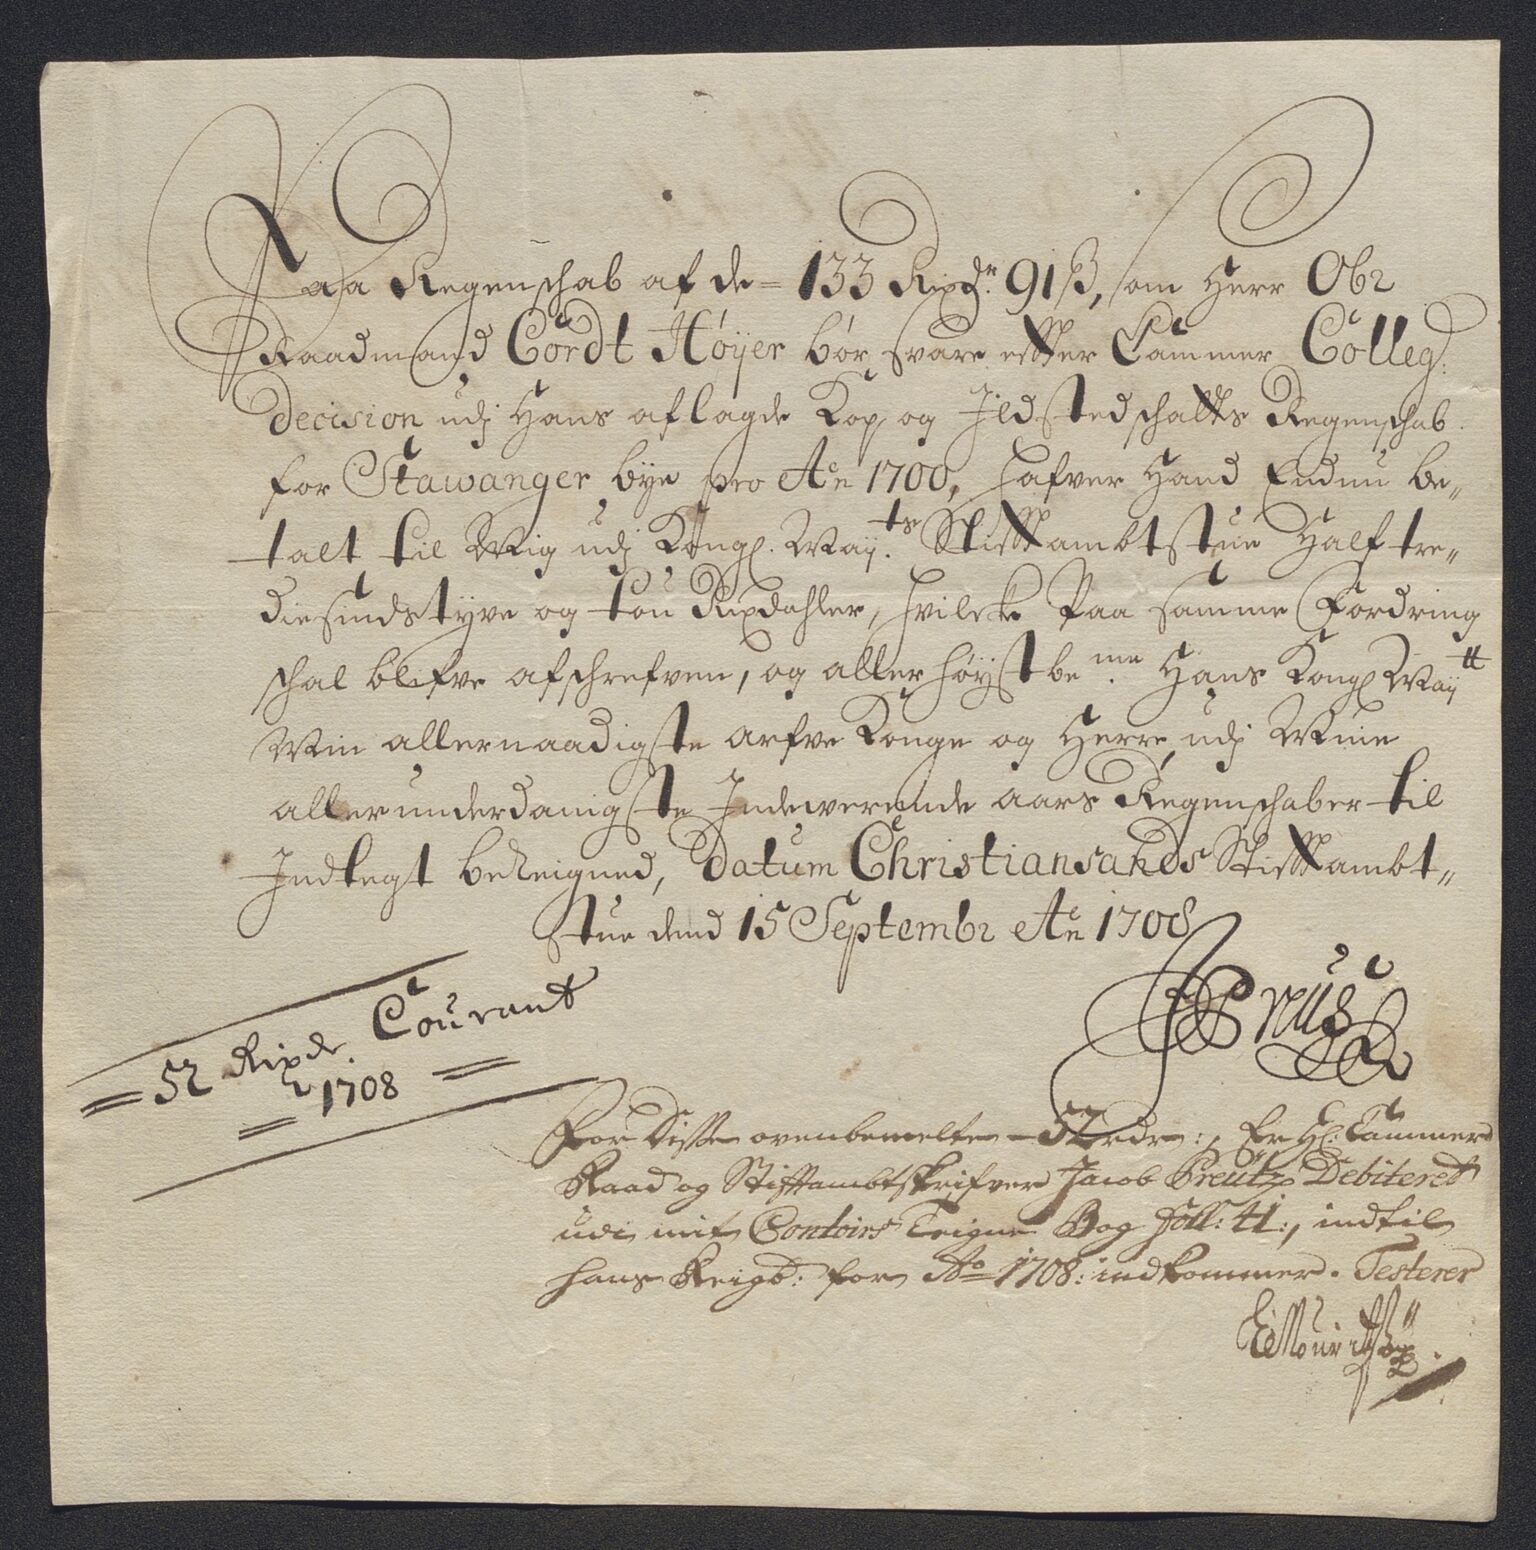 Paa Regenschab af de = 133 Rixdr. 91 ß, som Herr Obr
Raadmand Cordt Höÿer bör svare effter Cammer Colleg:
Decision udj Hans aflagde Kop og Ildstedschatts Regenschab
for Stawanger bÿe pro Ao 1700, hafver Hand Endnu be„
talt til Mig udj Kongl. Maÿ.ts Stifftambtstue Half tre„
diesindstyve og tou Rixdahler, hvilcke Paa samme Fordring
schal blifve afschrefven, og allerhöÿstbe.me Hans Kongl Maÿtt
Min allernaadigste arfve Konge og Herre, udj Mine
allerunderdanigste Indewerende aars Regenschaber til
Indtegt bereigned, Datum Christiansands Stifftambt„
stue dend 15 Septembr Ao 1708
52 Rixdr. Courant
1708
For Disse ovenbemelte - 52 rdr:, Er Hr: Cammer
Raad og Stifftambtskrifver Jacob Preutz Debiteret
udi mit Contoirs Teigne Bog Foll: 41:, indtil
hans Reigb: for Ao 1708: indkommer. Testerer